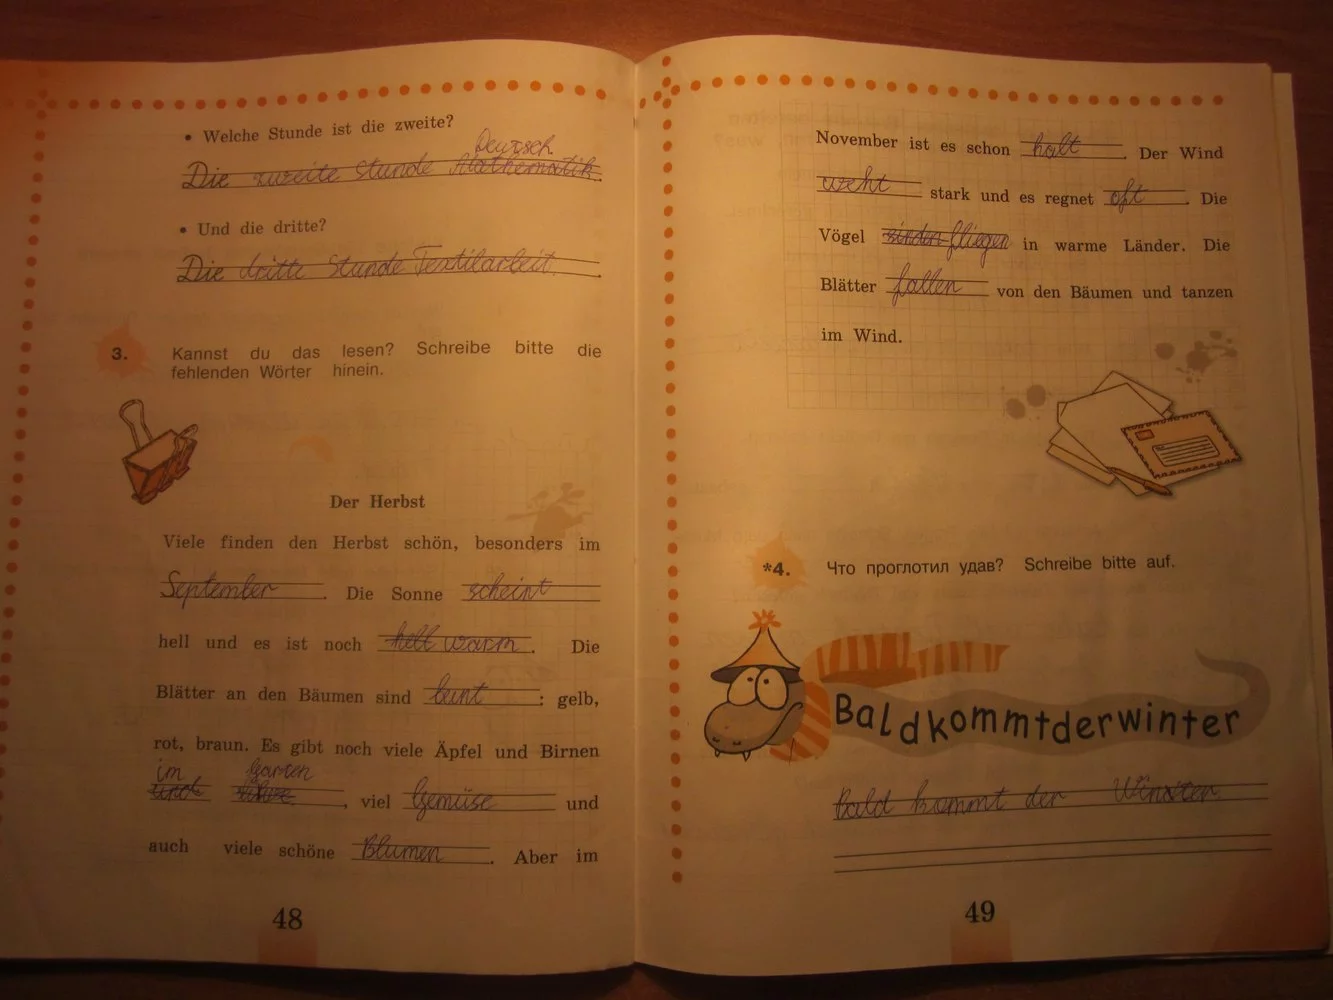 • Welche Stunde ist die zweite?
Deutsch
Die zweite Stunde Mathematik.
• Und die dritte?
Die dritte Stunde Textilarbeit.
3. Kannst du das lesen? Schreibe bitte die
fehlenden Wörter hinein.
Der Herbst
Viele finden den Herbst schön, besonders im
September. Die Sonne scheint
hell und es ist noch hell warm. Die
Blätter an den Bäumen sind bunt: gelb,
rot, braun. Es gibt noch viele Äpfel und Birnen
im Garten
, viel Gemüse und
auch viele schöne Blumen. Aber im
48
November ist es schon kalt. Der Wind
weht stark und es regnet oft. Die
Vögel fliegen in warme Länder. Die
Blätter fallen von den Bäumen und tanzen
im Wind.
*4. Что проглотил удав? Schreibe bitte auf.
Baldkommtderwinter
Bald kommt der Winter
49